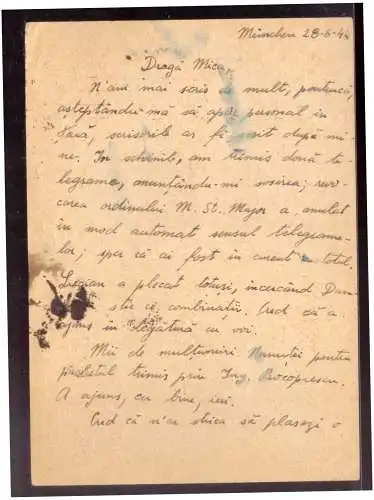 München 28-6-44
Dragă Mica,
N'am mai scris de mult, pentrucă,
așteptându-mă să apar personal în
țară, scrisorile ar fi venit după mi-
ne. In schimb, am trimis două te-
legrame, anunțându-mi sosirea; revo-
carea ordinului M. St. Major a anulat
în mod automat sensul telegrame-
lor; sper că ai fost în curent cu totul.
a plecat totuși, încercând Dum-
știe ce combinații. Cred că a
ajuns în legătură cu voi.
Mii de mulțumiri pentru
pachetul trimis prin Ing. Procopescu.
A ajuns, cu bine, ieri.
Cred că n'ar strica să plasezi o